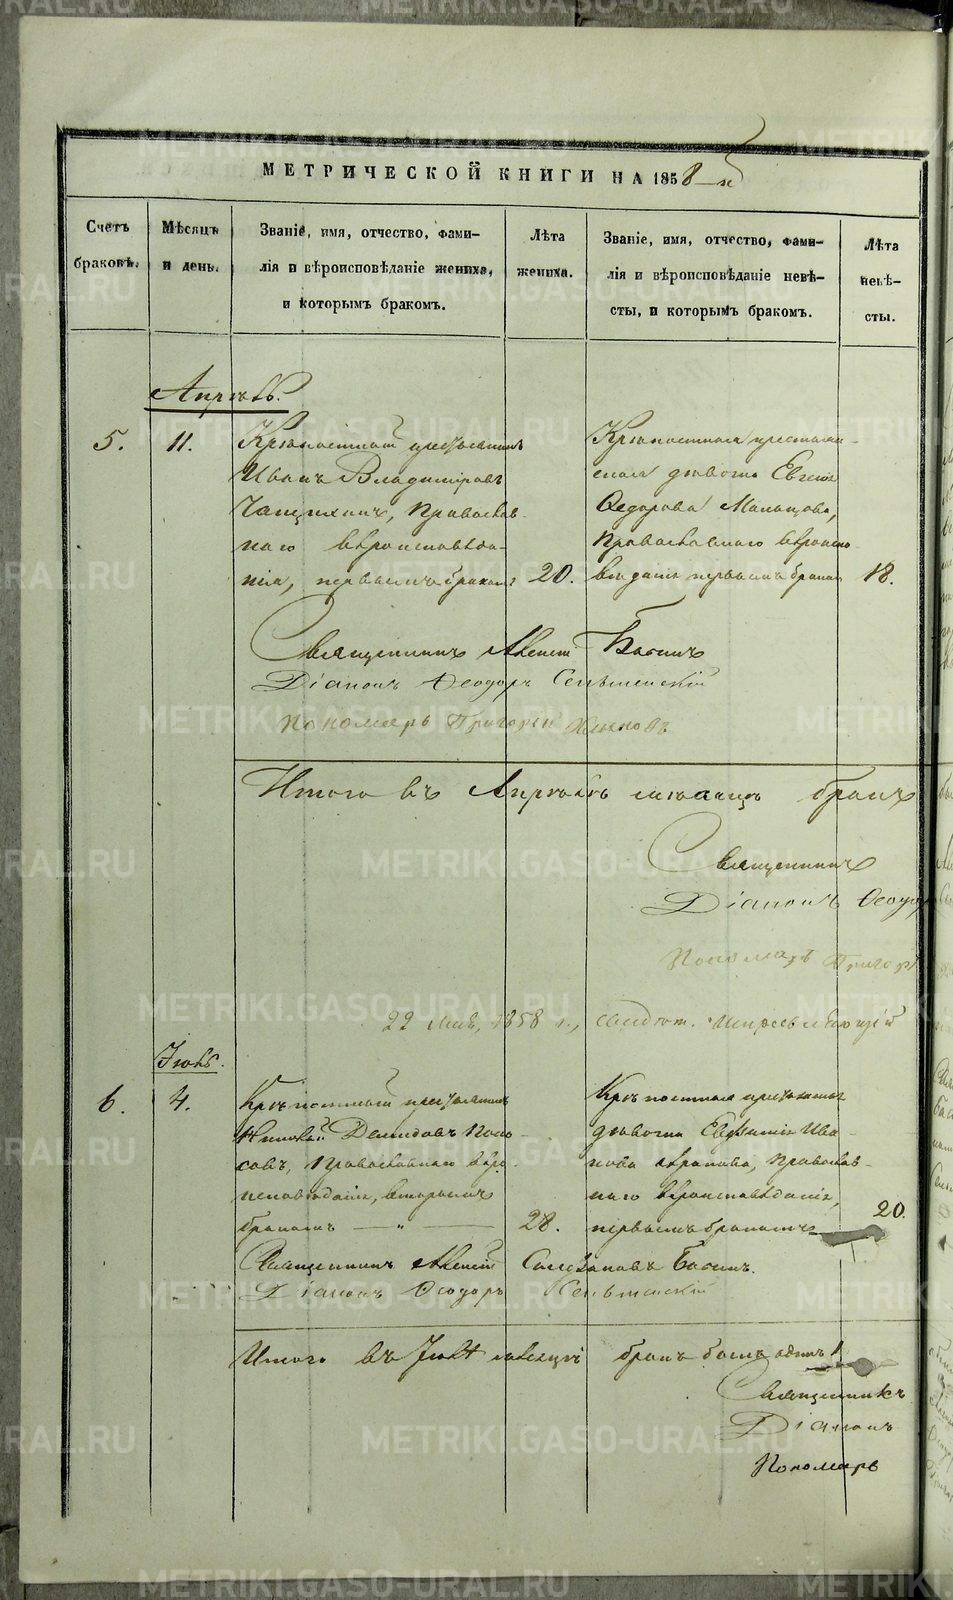 МЕТРИЧЕСКОЙ КНИГИ НА 1858-й
Счетъ
браковъ.
Мѣсяцъ
и день.
Званіе, имя, отчество, фами-
лія и вѣроисповѣданіе жениха,
и которымъ бракомъ.
Лѣта
жениха.
Званіе, имя, отчество, фами-
лія и вѣроисповѣданіе невѣ-
сты, и которымъ бракомъ.
Лѣта
невѣ-
сты.
Апрѣль.
5. 11.
Крѣпостный крестьянинъ
Иванъ Владиміровъ
Чащихинъ, Православ-
наго вѣроисповѣда-
нія, первымъ бракомъ 20.
Крѣпостная крестьян-
ская дѣвица Евгенія
Ѳедорова
Православнаго вѣроиспо-
вѣданія первымъ бракомъ 18.
Священникъ Алексій Басинъ
Діаконъ Ѳеодоръ
Пономарь Григорій
Итого въ Апрѣлѣ мѣсяцѣ бракъ
Священникъ
Діаконъ Ѳеодоръ
Пономарь Григор
22 мая, 1858 г.,
Іюль.
6. 4.
Крѣпостный крестьянинъ
Демидовъ Поно-
совъ, Православнаго вѣро-
исповѣданія, вторымъ
бракомъ — „ — 28.
Крѣпостная крестьянская
дѣвица Евфимія Ива-
нова Православ-
наго вѣроисповѣданія,
первымъ бракомъ 20.
Священникъ Алексій Басинъ.
Діаконъ Ѳеодоръ
Итого въ Іюлѣ мѣсяцѣ бракъ былъ одинъ 1
Священникъ
Діаконъ
Пономарь